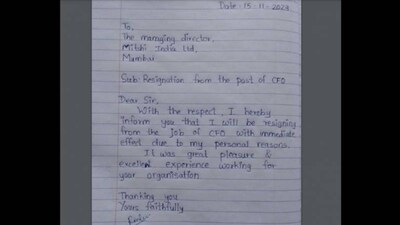 Date 15-11-2023
To,
The managing director.
Mitshi India Ltd.
Mumbai
Sub: Resignation from the post of CFO
Dear Sir,
With the respect, I hereby
inform you that I will be resigning
from the job of CFO with immediate
effect due to my personal reasons.
It was great pleasure &
excellent experience working for
your organisation
Thanking you
Yours faithfully